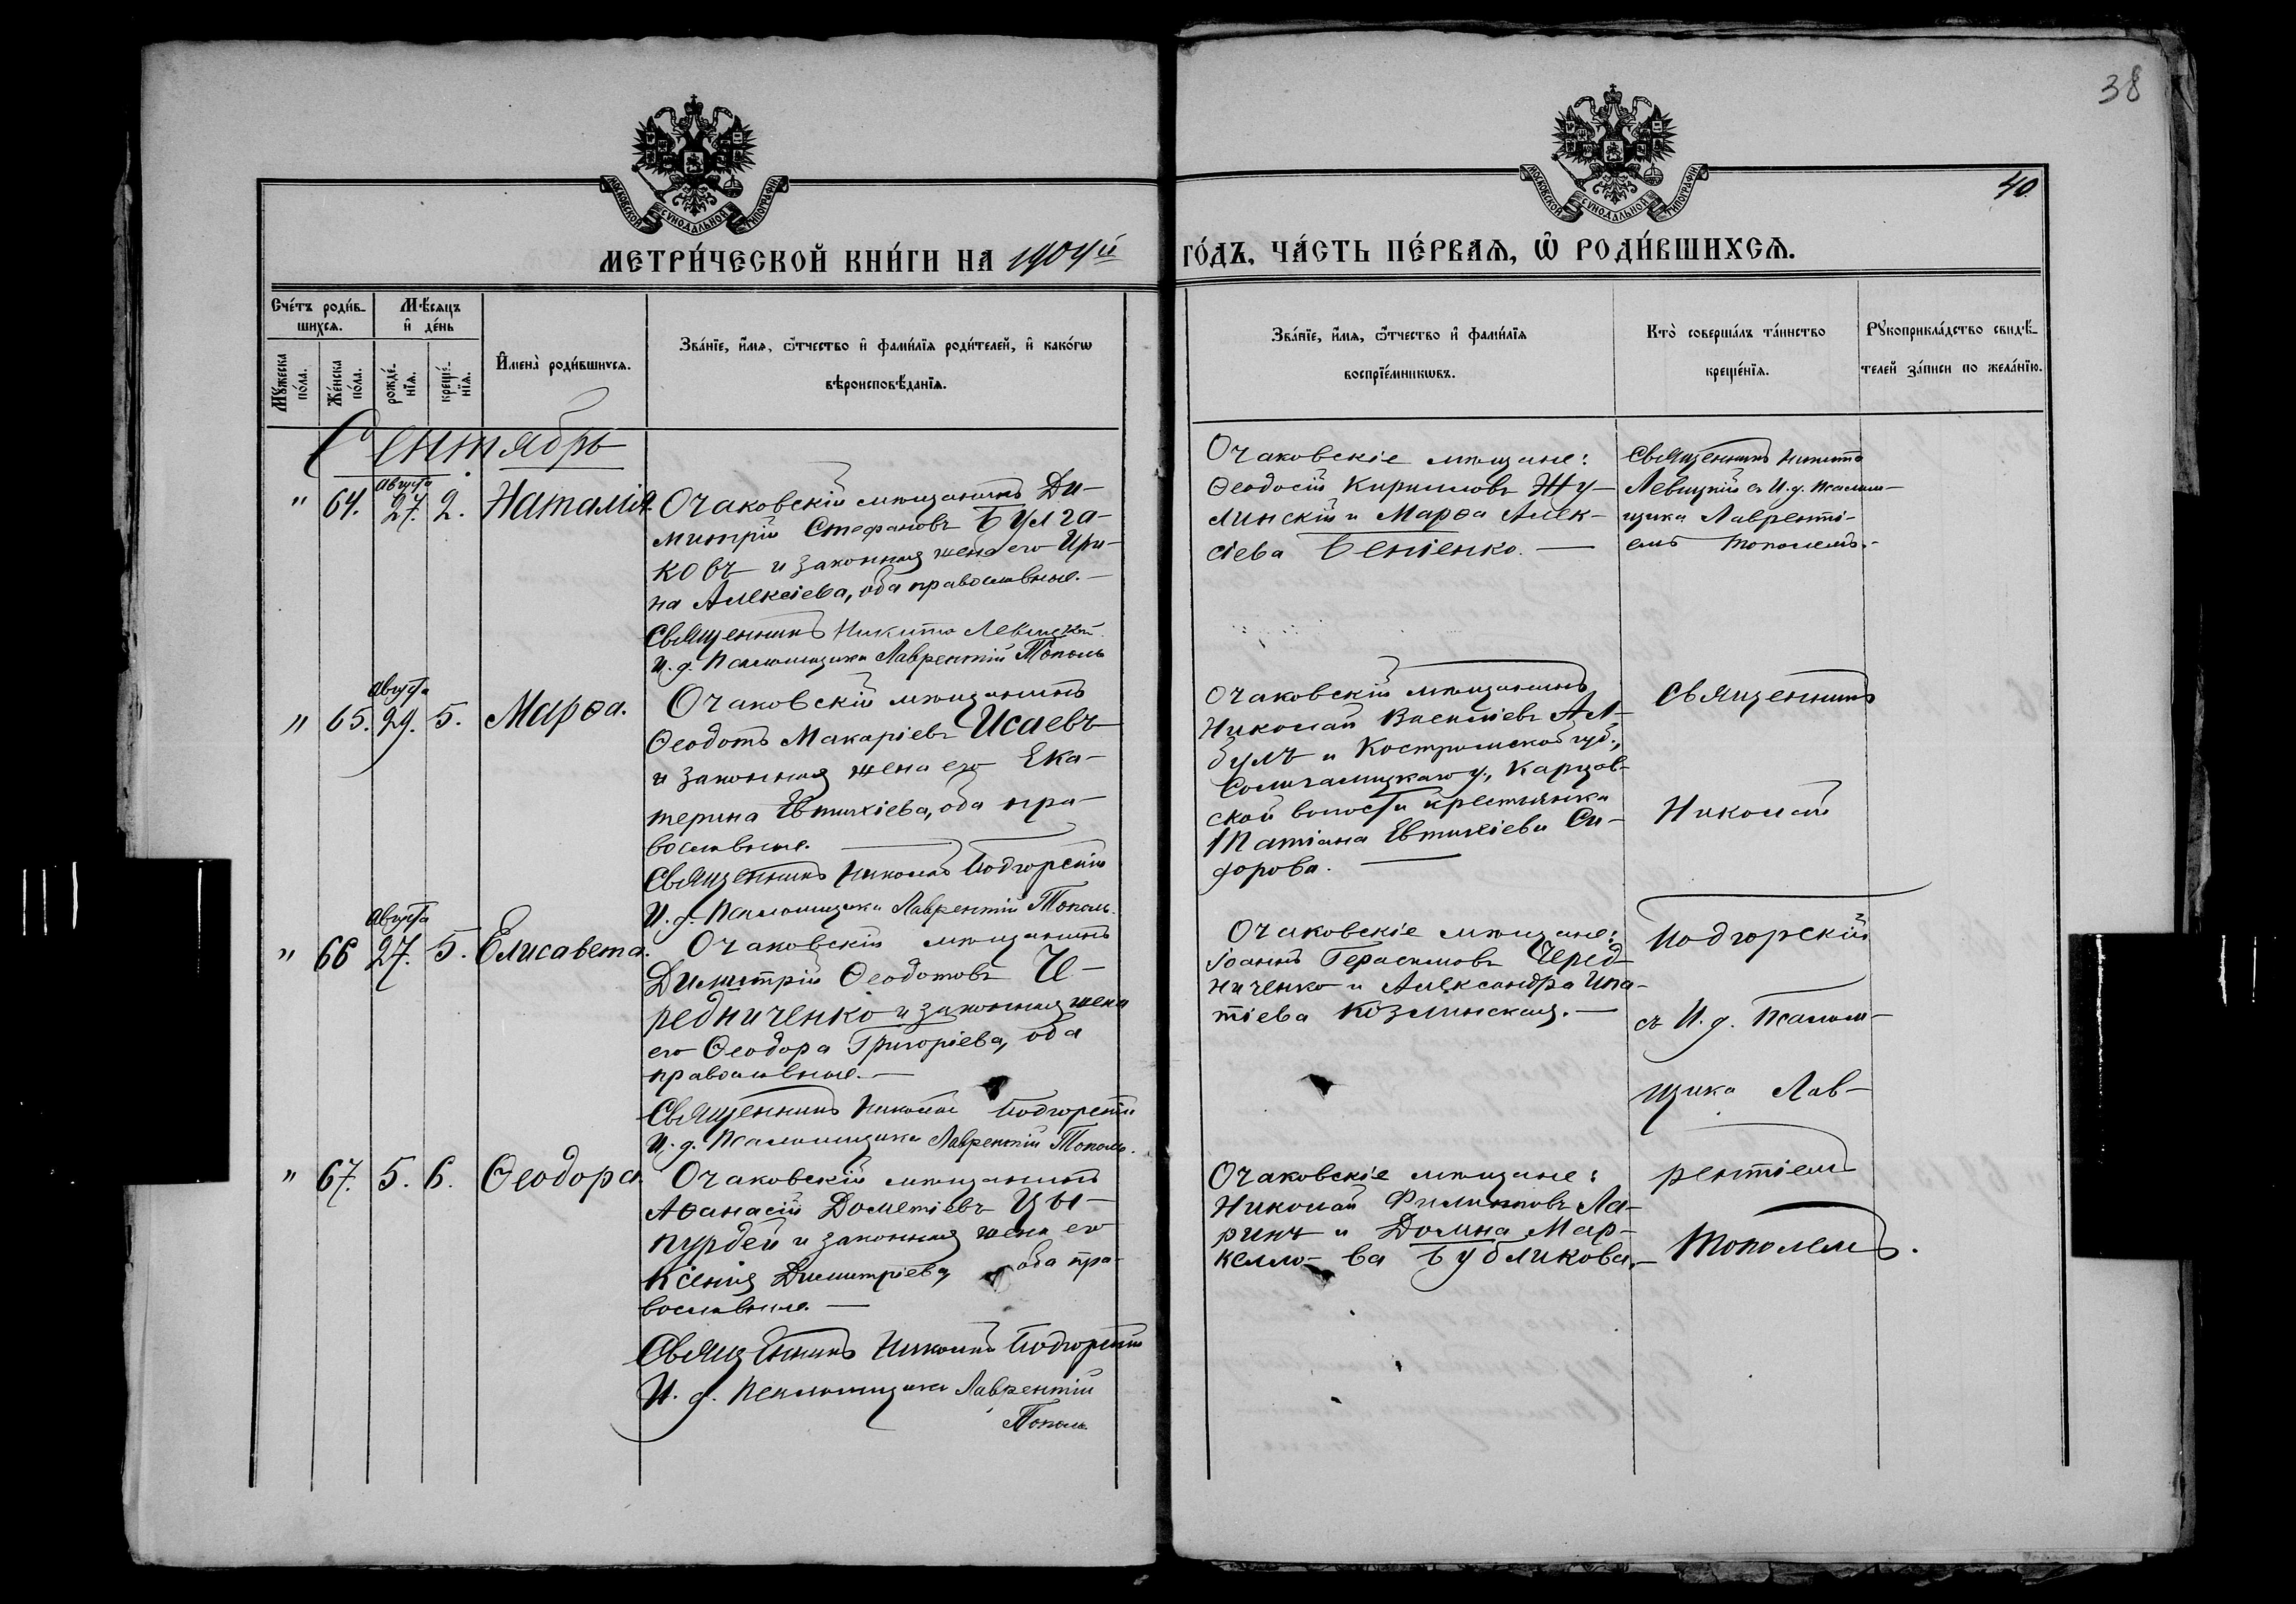 38
МОСКОВСКОЙ СѴНОДАЛЬНОЙ ТИПОГРАФІИ.
МОСКОВСКОЙ СѴНОДАЛЬНОЙ ТИПОГРАФІИ.
40.
МЕТРИ́ЧЕСКОЙ КНИ́ГИ НА 1904й
ГО́ДЪ, ЧА́СТЬ ПЕ́РВАѦ, Ѡ҆ РОДИ́ВШИХСѦ.
Сче́тъ роди́в-
шихсѧ.
Мѣ́сѧцъ
и҆ де́нь
Мꙋ́жеска
по́ла.
Же́нска
по́ла.
рожде́-
нїѧ.
креще́-
нїѧ.
И҆мена̀ роди́вшихсѧ.
Зва́нїе, и҆́мѧ, ѻ҆́тчество и҆ фами́лїѧ роди́телей, и҆ како́гѡ
вѣроисповѣ́данїѧ.
Зва́нїе, и҆́мѧ, ѻ҆́тчество и҆ фами́лїѧ
воспрїе́мникѡвъ.
Кто̀ соверша́лъ та́инство
креще́нїѧ.
Рꙋкоприкла́дство свидѣ́-
телей за́писи по жела́нїю.
Сентябрь
" 64. Августа 27. 2. Наталія.
Очаковскій мѣщанинъ Ди-
митрій Стефановъ Булга-
ковъ и законная жена его Ири-
на Алексіева, оба православные.—
Священникъ Никита Левицкій
И. д. Псаломщика Лаврентій Тополь
Очаковскіе мѣщане:
Ѳеодосій Кирилловъ Жу-
линскій и Марѳа Алек-
сіева Беніенко.—
Священникъ Никита
Левицкій съ И. д. Псалом-
щика Лавренті-
емъ Тополемъ.-
" 65. Августа 29. 5. Марѳа.
Очаковскій мѣщанинъ
Ѳеодотъ Макаріевъ Исаевъ
и законная жена его Ека-
терина Евтихіева, оба пра-
вославные.—
Священникъ Николай Подгорскій
И. д. Псаломщика Лаврентій Тополь.
Очаковскій мѣщанинъ
Николай Василіевъ Ал-
булъ и Костромской губ.,
Солигалицкаго у., Карцов-
ской волости крестьянка
Татіана Евтихіева Си-
дорова.—
Священникъ
Николай
" 66 Августа 27. 5. Елисавета.
Очаковскій мѣщанинъ
Димитрій Ѳеодотовъ Че-
редниченко и законная жена
его Ѳеодора Григоріева, оба
православные.—
Священникъ Николай Подгорскій
И. д. Псаломщика Лаврентій Тополь.
Очаковскіе мѣщане:
Іоаннъ Герасимовъ Черед-
ниченко и Александра Ипа-
тіева Козлинская.—
Подгорскій
съ И. д. Псалом-
щика Лав-
" 67. 5. 6. Ѳеодора.
Очаковскій мѣщанинъ
Аѳанасій Дометіевъ Цы-
пурдей и законная жена его
Ксенія Димитріева, оба пра-
вославные.—
Священникъ Николай Подгорскій
И. д. Псаломщика Лаврентій
Тополь
Очаковскіе мѣщане:
Николай Филипповъ Ла-
ринъ и Домна Мар-
келло-ва Бубликова.—
рентіемъ
Тополемъ.